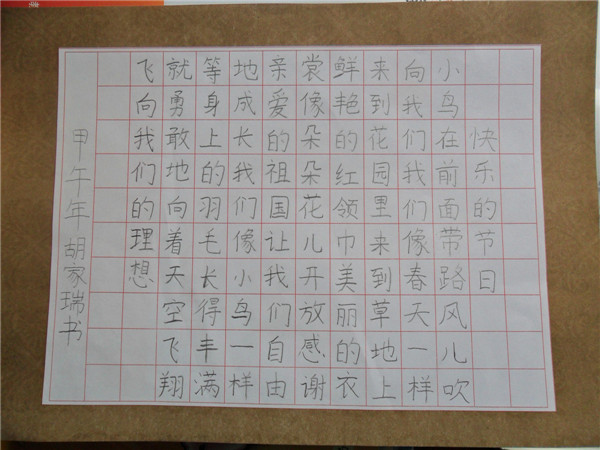 快乐的节日
小鸟在前面带路风儿吹
向我们我们像春天一样
来到花园里来到草地上
鲜艳的红领巾美丽的衣
裳像朵朵花儿开放感谢
亲爱的祖国让我们自由
地成长我们像小鸟一样
等身上的羽毛长得丰满
就勇敢地向着天空飞翔
飞向我们的理想
甲午年胡家瑞书